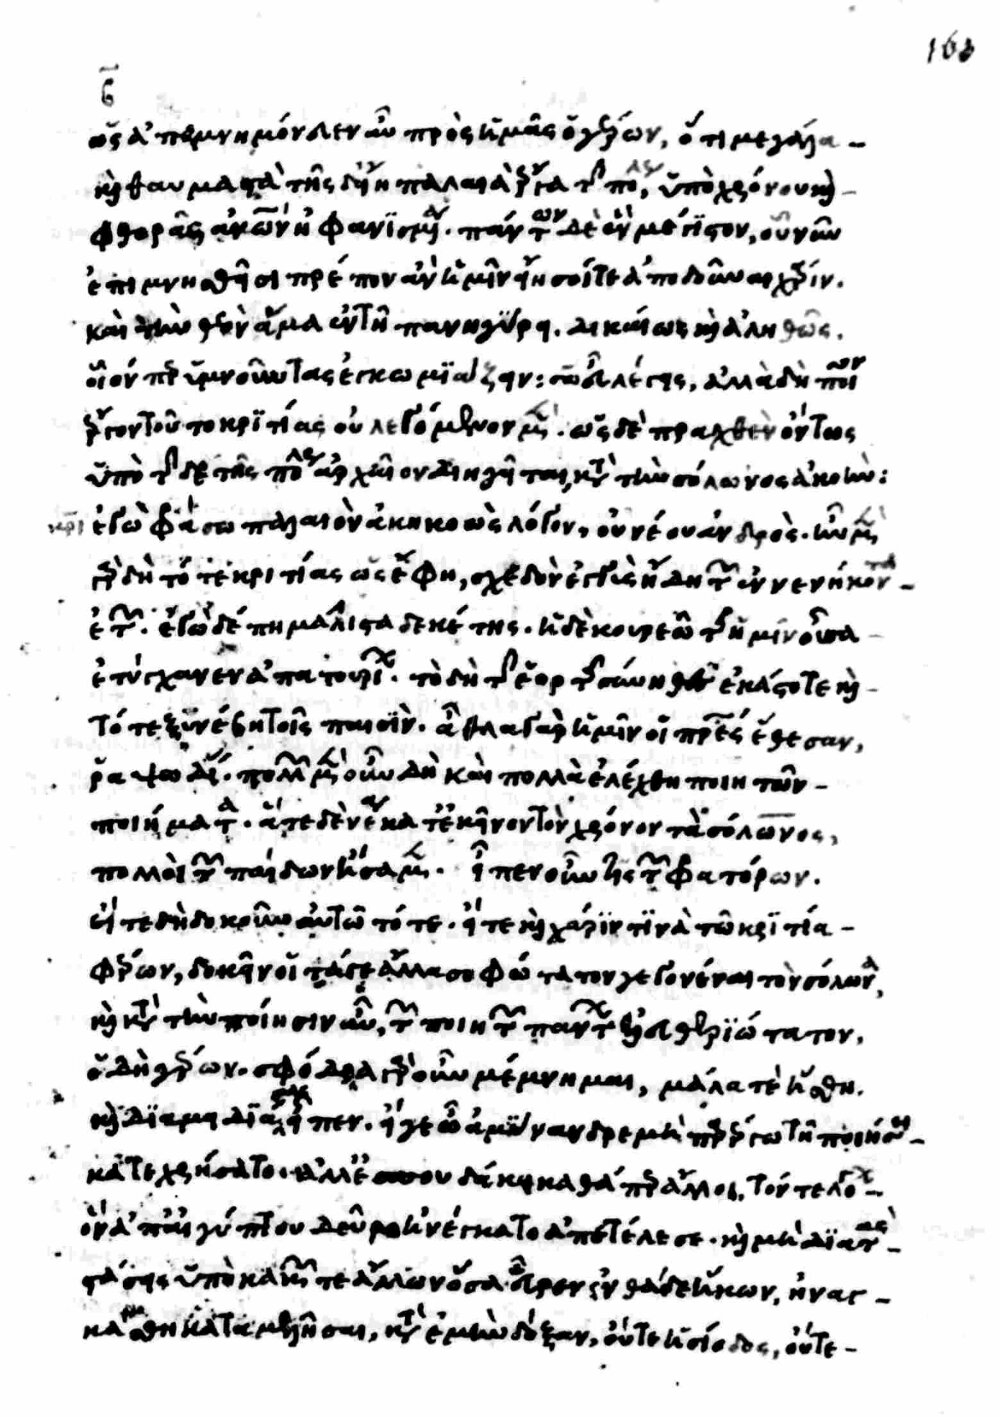 ϛ
163
ὡς ἀπεμνημόνευεν αὖ πρὸς ἡμᾶς ὁ γέρων, ὅτι μεγάλα -
καὶ θαυμαστὰ τῆς δ' εἴη παλαιὰ ἔργα τῆς πόλεως, ὑπὸ χρόνου καὶ -
φθορᾶς ἀνων ἠφανισμένα. πάντων δὲ ἓν μέγιστον, οὗ νῦν
ἐπιμνησθεῖσι πρέπον ἂν ἡμῖν εἴη σοί τε ἀποδοῦναι χάριν.
καὶ τὴν θεὸν ἅμα ἐν τῆ πανηγύρει. δικαίως καὶ ἀληθῶς.
οἷόν περ ὑμνοῦντας ἐγκωμιάζειν: σω εὖ λέγεις, ἀλλὰ δὴ ποῖον
ἔργον τοῦτο κριτίας οὐ λεγόμενον μέν. ὡς δὲ πραχθὲν ὄντως
ὑπὸ τῆσδε τῆς πόλεως ἀρχαῖον διηγεῖται, κατὰ τὴν σόλωνος ἀκοήν:
κρι ἐγὼ φράσω παλαιὸν ἀκηκοὼς λόγον, οὐ νέου ἀνδρὸς. ἦν μὲν
γὰρ δὴ τότε κριτίας ὡς ἔφη, σχεδὸν ἐγγὺς ἤδη τῶν ἐνενήκοντα -
ἐτῶν. ἐγὼ δέ πη μάλιστα δεκέτης. ἡ δὲ κουρεῶτις ἡμῖν οὖσα -
ἐτύγχανεν ἀπατουρίων. τὸ δὴ τῆς ἑορτῆς σύνηθες ἑκάστοτε καὶ -
τότε ξυνέβη τοῖς παισὶν. ἆθλα γὰρ ἡμῖν οἱ πρες ἔθεσαν,
ῥαψωδίας. πολλῶν μὲν οὖν δὴ καὶ πολλὰ ἐλέχθη ποιητῶν -
ποιήματα. ἅτε δὲ νέα κατ' ἐκεῖνον τὸν χρόνον τὰ σόλωνος,
πολλοὶ τῶν παίδων ᾔσαμεν. εἶπεν οὖν τις τῶν φατόρων.
εἴτε δὴ δοκοῦν αὐτῶ τότε. εἴτε καὶ χάριν τινὰ τῶ κριτία -
φέρων, δοκεῖν οἱ τά τε ἄλλα σοφώτατον γεγονέναι τὸν σόλωνα,
καὶ κατὰ τὴν ποίησιν αὖ, τῶν ποιητῶν πάντων ἐλευθεριώτατον,
ὁ δὴ γέρων. σφόδρα γὰρ οὖν μέμνημαι, μάλα τὲ ἥσθη.
καὶ διαμειδιάσας εἶπεν. εἴγε ὦ ἀμύνανδρε μὴ παρέργω τῆ ποιήσει -
κατεχρήσατο. ἀλλ' ἐσπουδάκει καθάπερ ἄλλοι. τόν τε λόγον -
ὃν ἀπ' αἰγύπτου δεῦρο ἠνέγκατο ἀπετέλεσε. καὶ μὴ διὰ τὰς -
στάσεις ὑπὸ κακῶν τε ἄλλων ὅσα εὗρεν ἐνθάδε ἥκων, ἠναγ -
κάσθη καταμελῆσαι, κατὰ ἐμὴν δόξαν, οὔτε ἡσίοδος, οὔτε -